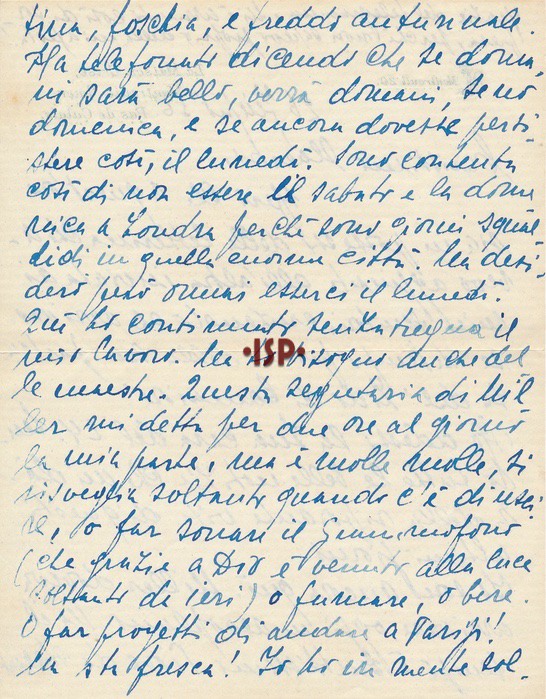 tina, foschia, e freddo autunnale.
Ha telefonato dicendo che se doma
ni sarà bello, verrà domani, se no
domenica, e se ancora dovette persi
stere così, il lunedì. Sono contenta
così di non essere il sabato e la dome
nica a Londra perchè sono giorni squal
lidi in quella enorme città. Ma desi,
dero però ormai esserci il lunedì.
Qui ho continuato senza tregua il
mio lavoro. Ma ho bisogno anche del
le maestre. Questa segretaria di Mil
ler mi detta per due ore al giorno
la mia parte, ma è molle molle, si
risveglia soltanto quando c'è di usci
re, o far sonare il Grammofono
(che grazie a Dio è venuto alla luce
soltanto da ieri) o fumare, o bere.
O far progetti di andare a Parigi!
Ma sta fresca! Io ho in mente sol-
•ISP•